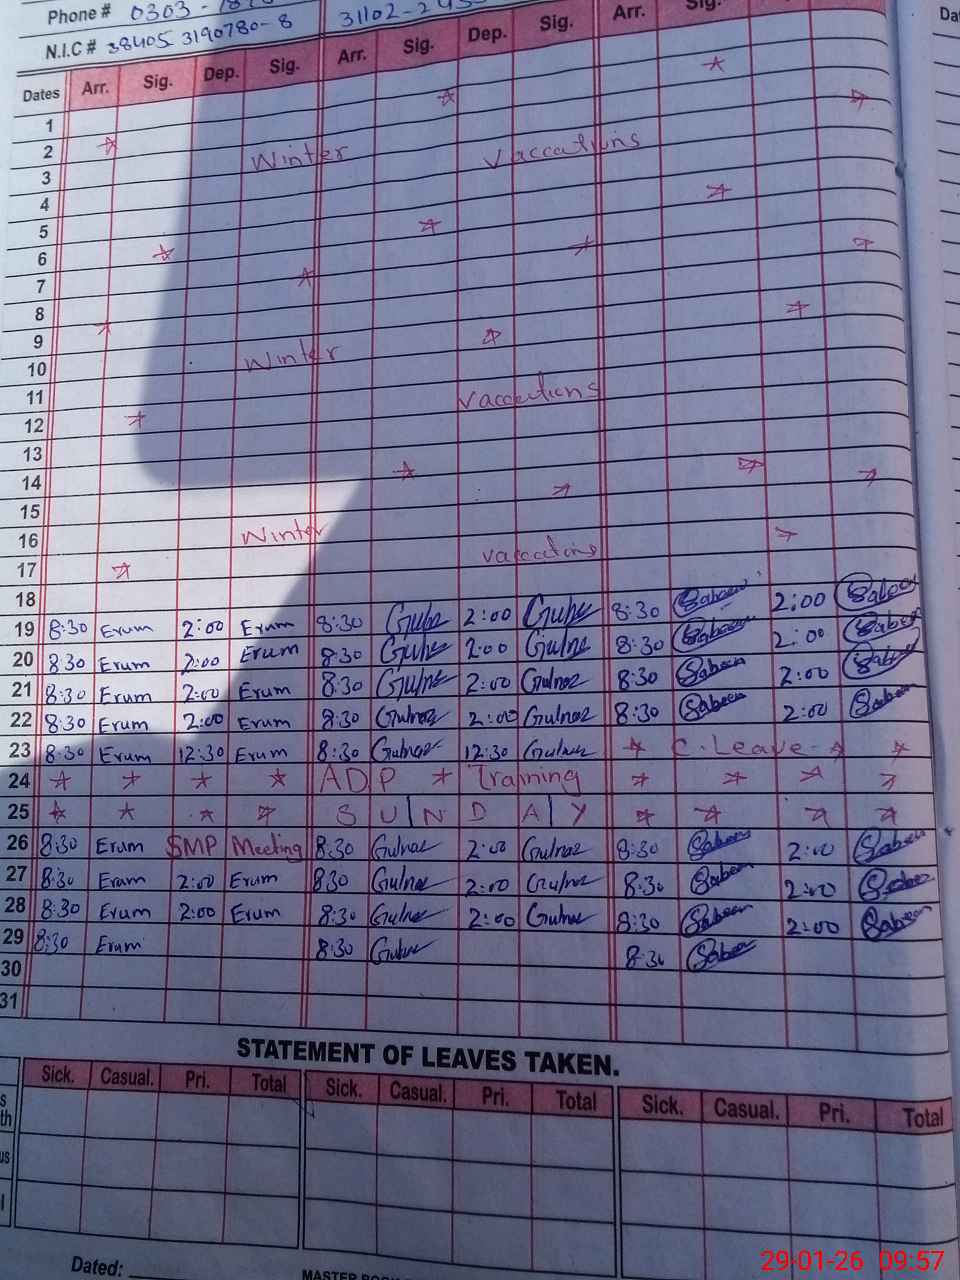 Phone # 0303 -
N.I.C # 38405 3190780-8 31102-2
Dates Arr. Sig. Dep. Sig. Arr. Sig. Dep. Sig. Arr. Sig.
1
2 Winter Vaccations
3
4
5
6
7
8
9
10 Winter
11 Vaccations
12
13
14
15
16 Winter
17 Vaccations
18
19 8:30 Erum 2:00 Erum 8:30 2:00 8:30 Sabeen 2:00 Sabeen
20 8:30 Erum 2:00 Erum 8:30 2:00 8:30 Sabeen 2:00 Sabeen
21 8:30 Erum 2:00 Erum 8:30 Gulnaz 2:00 Gulnaz 8:30 Sabeen 2:00 Sabeen
22 8:30 Erum 2:00 Erum 8:30 Gulnaz 2:00 Gulnaz 8:30 Sabeen 2:00 Sabeen
23 8:30 Erum 12:30 Erum 8:30 Gulnaz 12:30 Gulnaz C. Leave
24 ADP Training
25 SUNDAY
26 8:30 Erum SMP Meeting 8:30 Gulnaz 2:00 Gulnaz 8:30 Sabeen 2:00 Sabeen
27 8:30 Erum 2:00 Erum 8:30 Gulnaz 2:00 Gulnaz 8:30 Sabeen 2:00 Sabeen
28 8:30 Erum 2:00 Erum 8:30 Gulnaz 2:00 Gulnaz 8:30 Sabeen 2:00 Sabeen
29 8:30 Erum 8:30 Gulnaz 8:30 Sabeen
30
31
STATEMENT OF LEAVES TAKEN.
Sick. Casual. Pri. Total Sick. Casual. Pri. Total Sick. Casual. Pri. Total
Dated:
MASTER
29-01-26 09:57